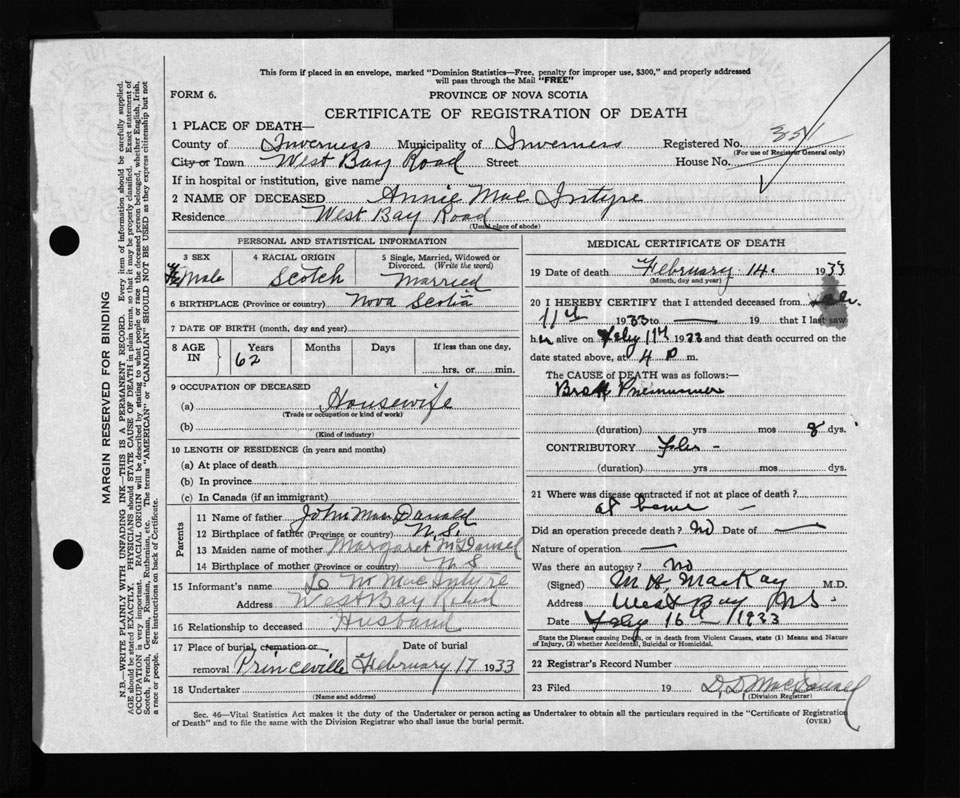 This form if placed in an envelope, marked "Dominion Statistics—Free, penalty for improper use, $300," and properly addressed
will pass through the Mail "FREE"
FORM 6.
PROVINCE OF NOVA SCOTIA
CERTIFICATE OF REGISTRATION OF DEATH
1 PLACE OF DEATH—
County of Inverness Municipality of Inverness Registered No. 351
(For use of Registrar General only)
City or Town West Bay Road Street House No.
If in hospital or institution, give name
2 NAME OF DECEASED Annie Mac Intyre
Residence West Bay Road
(Usual place of abode)
PERSONAL AND STATISTICAL INFORMATION
3 SEX 4 RACIAL ORIGIN 5 Single, Married, Widowed or Divorced. (Write the word)
FeMale Scotch Married
6 BIRTHPLACE (Province or country) Nova Scotia
7 DATE OF BIRTH (month, day and year)
8 AGE IN Years Months Days If less than one day,
62 hrs. or min.
9 OCCUPATION OF DECEASED
(a) Housewife
(Trade or occupation or kind of work)
(b)
(Kind of industry)
10 LENGTH OF RESIDENCE (in years and months)
(a) At place of death
(b) In province
(c) In Canada (if an immigrant)
Parents
11 Name of father John MacDonald
12 Birthplace of father (Province or country) N.S.
13 Maiden name of mother Margaret McDaniel
14 Birthplace of mother (Province or country) N S
15 Informant's name MacIntyre
Address West Bay Road
16 Relationship to deceased Husband
17 Place of burial, cremation or removal Date of burial
Princeville February 17 1933
18 Undertaker
(Name and address)
MEDICAL CERTIFICATE OF DEATH
19 Date of death February 14. 1933
(Month, day and year)
20 I HEREBY CERTIFY that I attended deceased from
11th 1933 to — 19 that I last saw
her alive on Feby 11th 1933 and that death occurred on the
date stated above, at 4 p m.
The CAUSE of DEATH was as follows:—
(duration) yrs mos 8 dys.
CONTRIBUTORY
(duration) yrs mos dys.
21 Where was disease contracted if not at place of death?
at home —
Did an operation precede death? No Date of —
Nature of operation —
Was there an autopsy? No
(Signed) MacKay M.D.
Address West Bay NS.
Date Feby 16th 1933
State the Disease causing Death, or in death from Violent Causes, state (1) Means and Nature
of Injury, (2) whether Accidental, Suicidal or Homicidal.
22 Registrar's Record Number
23 Filed 19 D, D MacDonald
(Division Registrar)
Sec. 46—Vital Statistics Act makes it the duty of the Undertaker or person acting as Undertaker to obtain all the particulars required in the "Certificate of Registration
of Death" and to file the same with the Division Registrar who shall issue the burial permit.
(OVER)
MARGIN RESERVED FOR BINDING
N.B.—WRITE PLAINLY WITH UNFADING INK—THIS IS A PERMANENT RECORD. Every item of information should be carefully supplied.
AGE should be stated EXACTLY. PHYSICIANS should STATE CAUSE OF DEATH in plain terms, so that it may be properly classified. Exact statement of
OCCUPATION is very important. RACIAL ORIGIN will be described by stating to what people or race the deceased person belonged, whether English, Irish,
Scotch, French, German, Russian, Ruthenian, etc. The terms "AMERICAN" or "CANADIAN" SHOULD NOT BE USED as they express citizenship but not
a race or people. See instructions on back of Certificate.